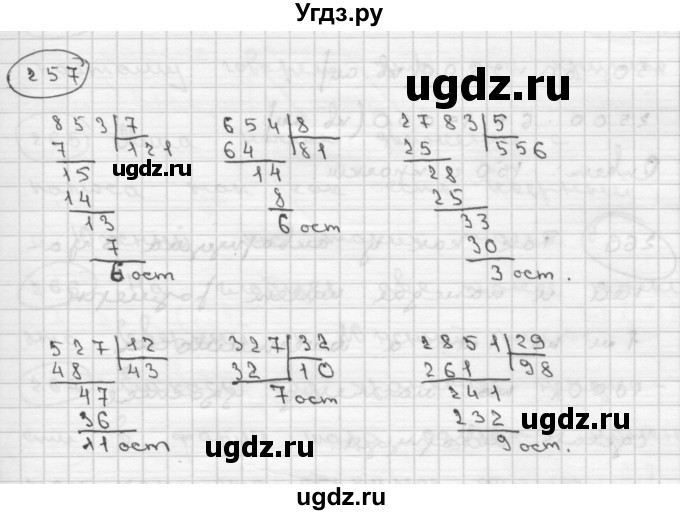 Угдз.ру
257
853 7
7 121
15
14
13
7
6 ост
654 8
64 81
14
8
6 ост
2783 5
25 556
28
25
33
30
3 ост.
527 12
48 43
47
36
11 ост
327 32
32 10
7 ост
2851 29
261 98
241
232
9 ост.
ugdz.ru
ugdz.ru
ugdz.ru
ugdz.ru
ugdz.ru
ugdz.ru
ugdz.ru